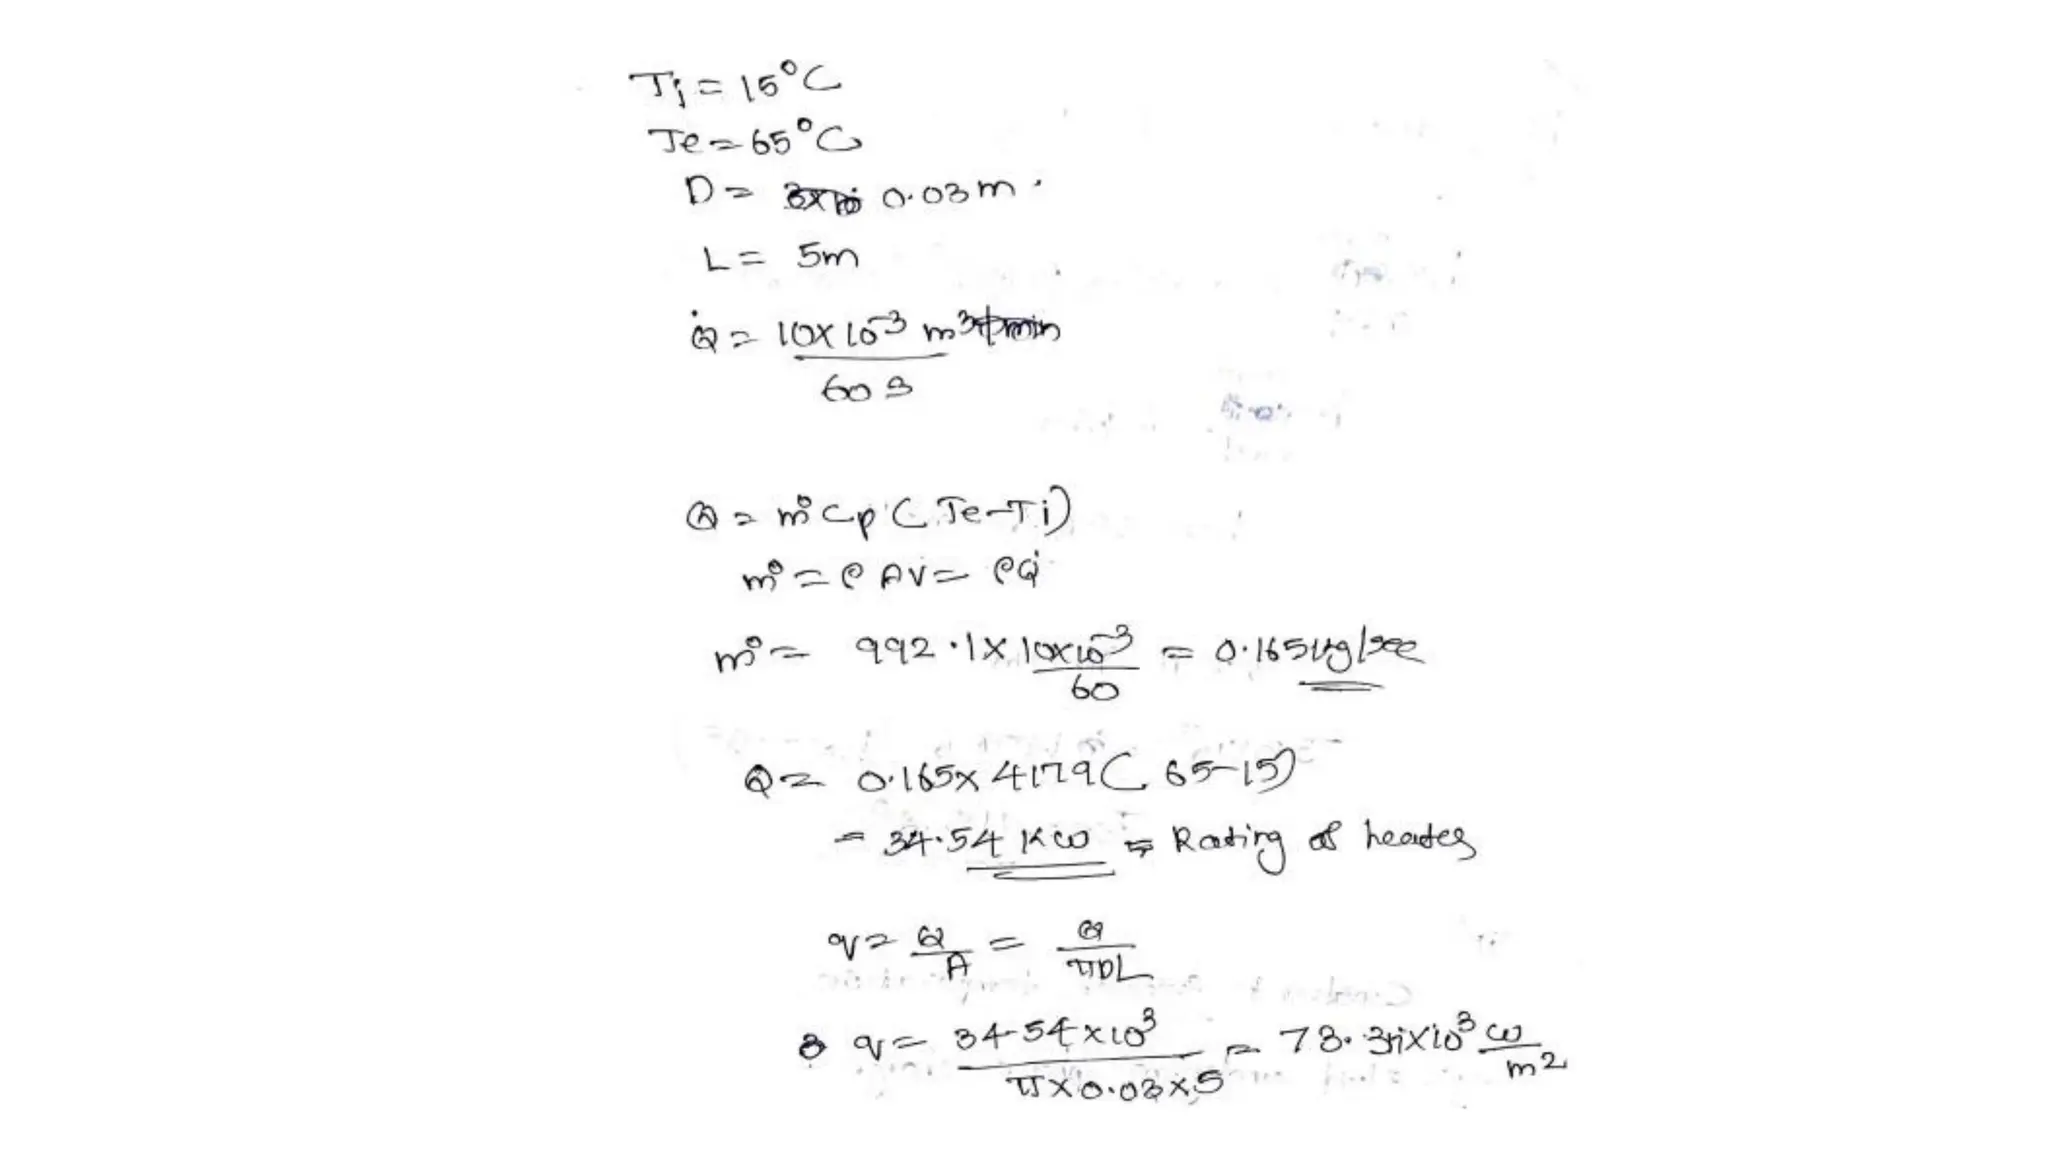 Ti = 15°C
Te = 65°C
D = 0.03m.
L = 5m
Q̇ = 10×10⁻³ m³
60 s
Q = m° Cp (Te-Ti)
m° = ρAV = ρQ̇
m° = 992.1 × 10×10⁻³ / 60 = 0.165 kg/sec
Q = 0.165 × 4179 (65-15)
= 34.54 kw = Rating of heater
q = Q/A = Q/πDL
q = 34.54 × 10³ / π × 0.03 × 5 = 73. ×10³ w/m²